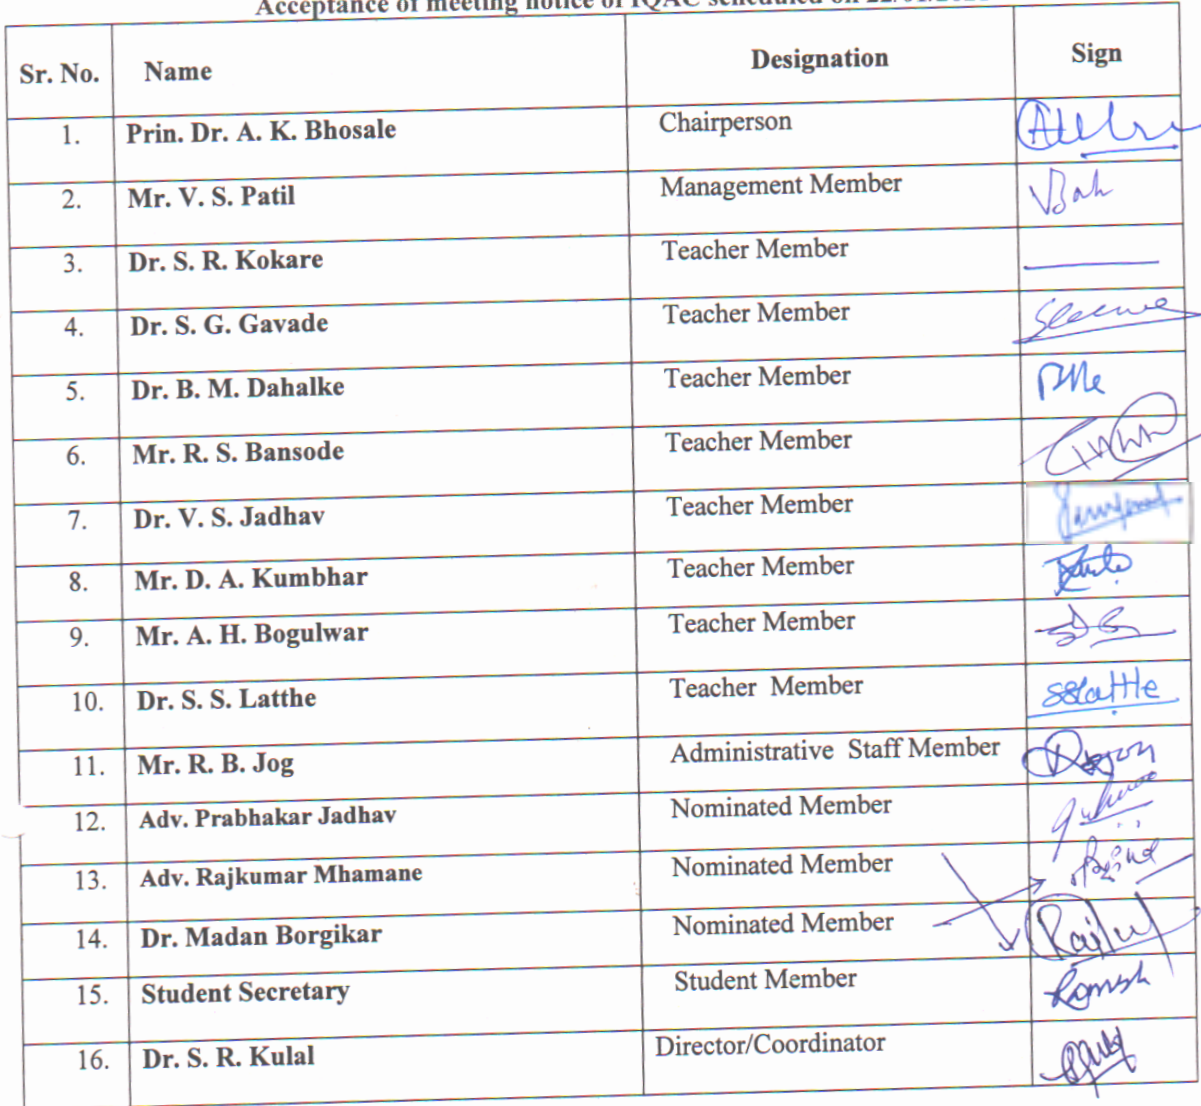 Acceptance of meeting notice of IQAC scheduled on
Sr. No. Name Designation Sign
1. Prin. Dr. A. K. Bhosale Chairperson
2. Mr. V. S. Patil Management Member
3. Dr. S. R. Kokare Teacher Member
4. Dr. S. G. Gavade Teacher Member
5. Dr. B. M. Dahalke Teacher Member
6. Mr. R. S. Bansode Teacher Member
7. Dr. V. S. Jadhav Teacher Member
8. Mr. D. A. Kumbhar Teacher Member
9. Mr. A. H. Bogulwar Teacher Member
10. Dr. S. S. Latthe Teacher Member SSLatthe
11. Mr. R. B. Jog Administrative Staff Member
12. Adv. Prabhakar Jadhav Nominated Member
13. Adv. Rajkumar Mhamane Nominated Member
14. Dr. Madan Borgikar Nominated Member
15. Student Secretary Student Member
16. Dr. S. R. Kulal Director/Coordinator